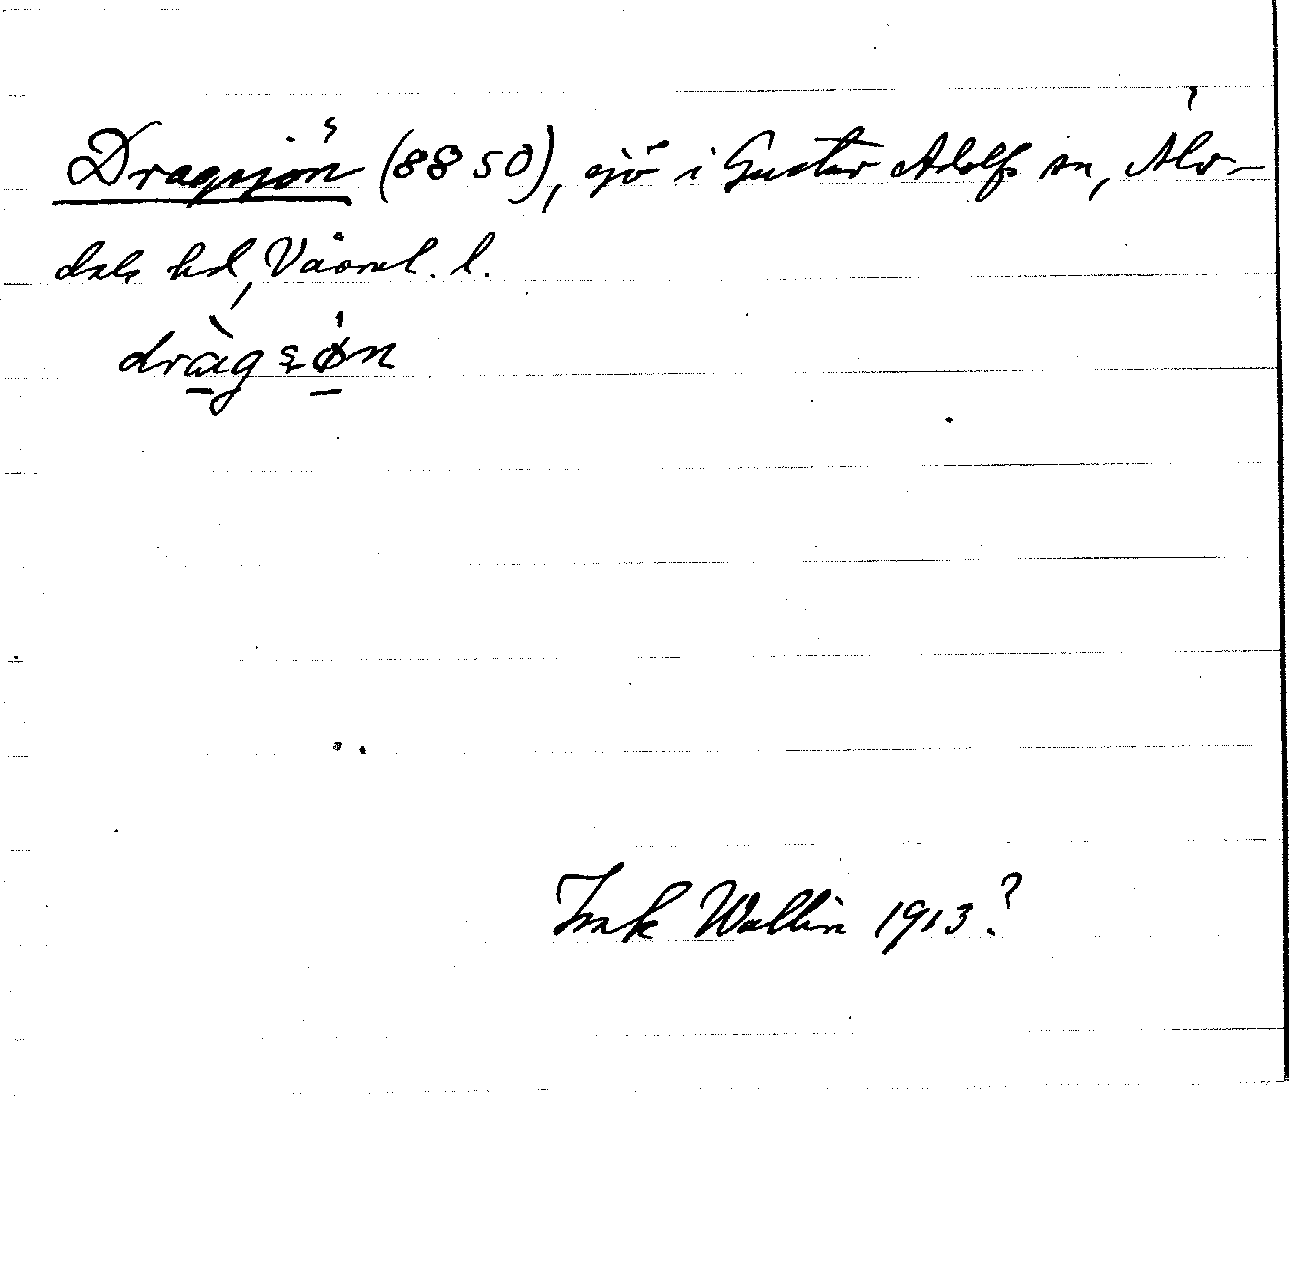 Dragsjön (8850), sjö i Gustav Adolfs sn, Älv-
dals hd, Värml. l.
dràgsøn
Wallin 1913?